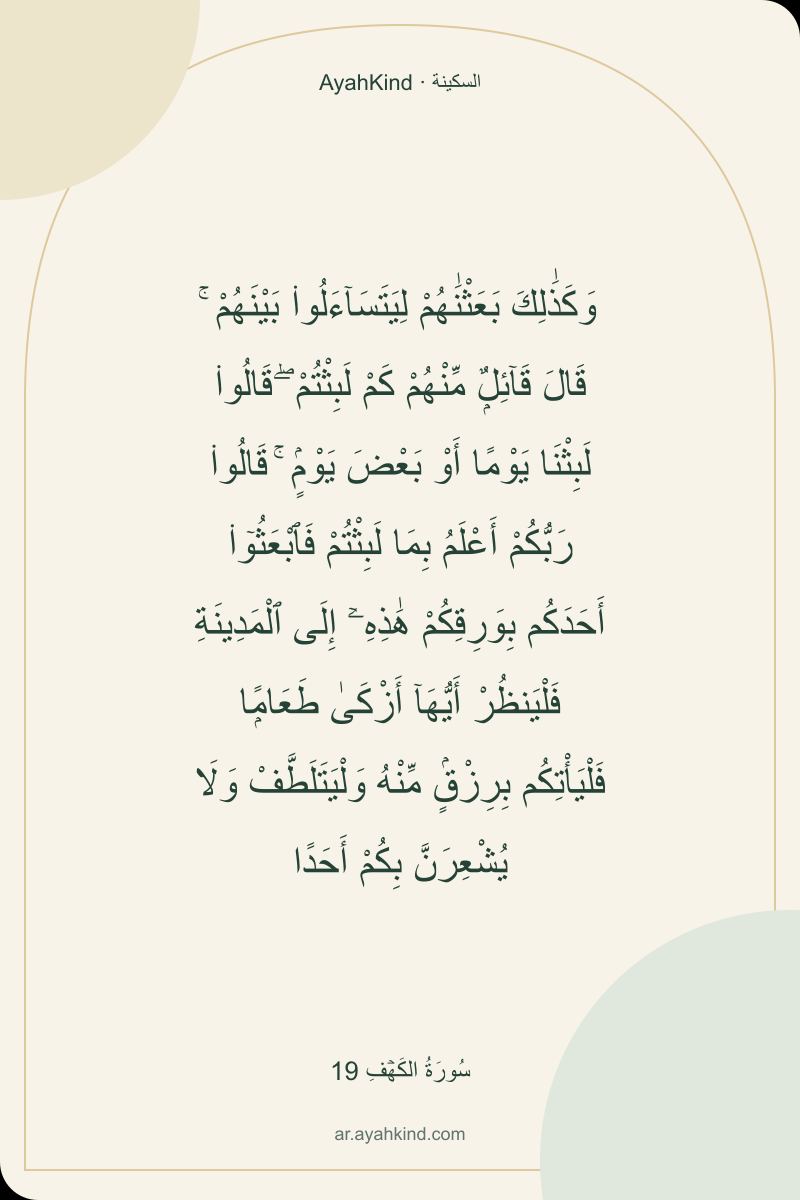 AyahKind · السكينة
وَكَذَٰلِكَ بَعَثْنَٰهُمْ لِيَتَسَآءَلُوا۟ بَيْنَهُمْ ۚ
قَالَ قَآئِلٌۭ مِّنْهُمْ كَمْ لَبِثْتُمْ ۖ قَالُوا۟
لَبِثْنَا يَوْمًا أَوْ بَعْضَ يَوْمٍۢ ۚ قَالُوا۟
رَبُّكُمْ أَعْلَمُ بِمَا لَبِثْتُمْ فَٱبْعَثُوٓا۟
أَحَدَكُم بِوَرِقِكُمْ هَٰذِهِۦٓ إِلَى ٱلْمَدِينَةِ
فَلْيَنظُرْ أَيُّهَآ أَزْكَىٰ طَعَامًۭا
فَلْيَأْتِكُم بِرِزْقٍۢ مِّنْهُ وَلْيَتَلَطَّفْ وَلَا
يُشْعِرَنَّ بِكُمْ أَحَدًا
سُورَةُ الكَهۡفِ 19
ar.ayahkind.com